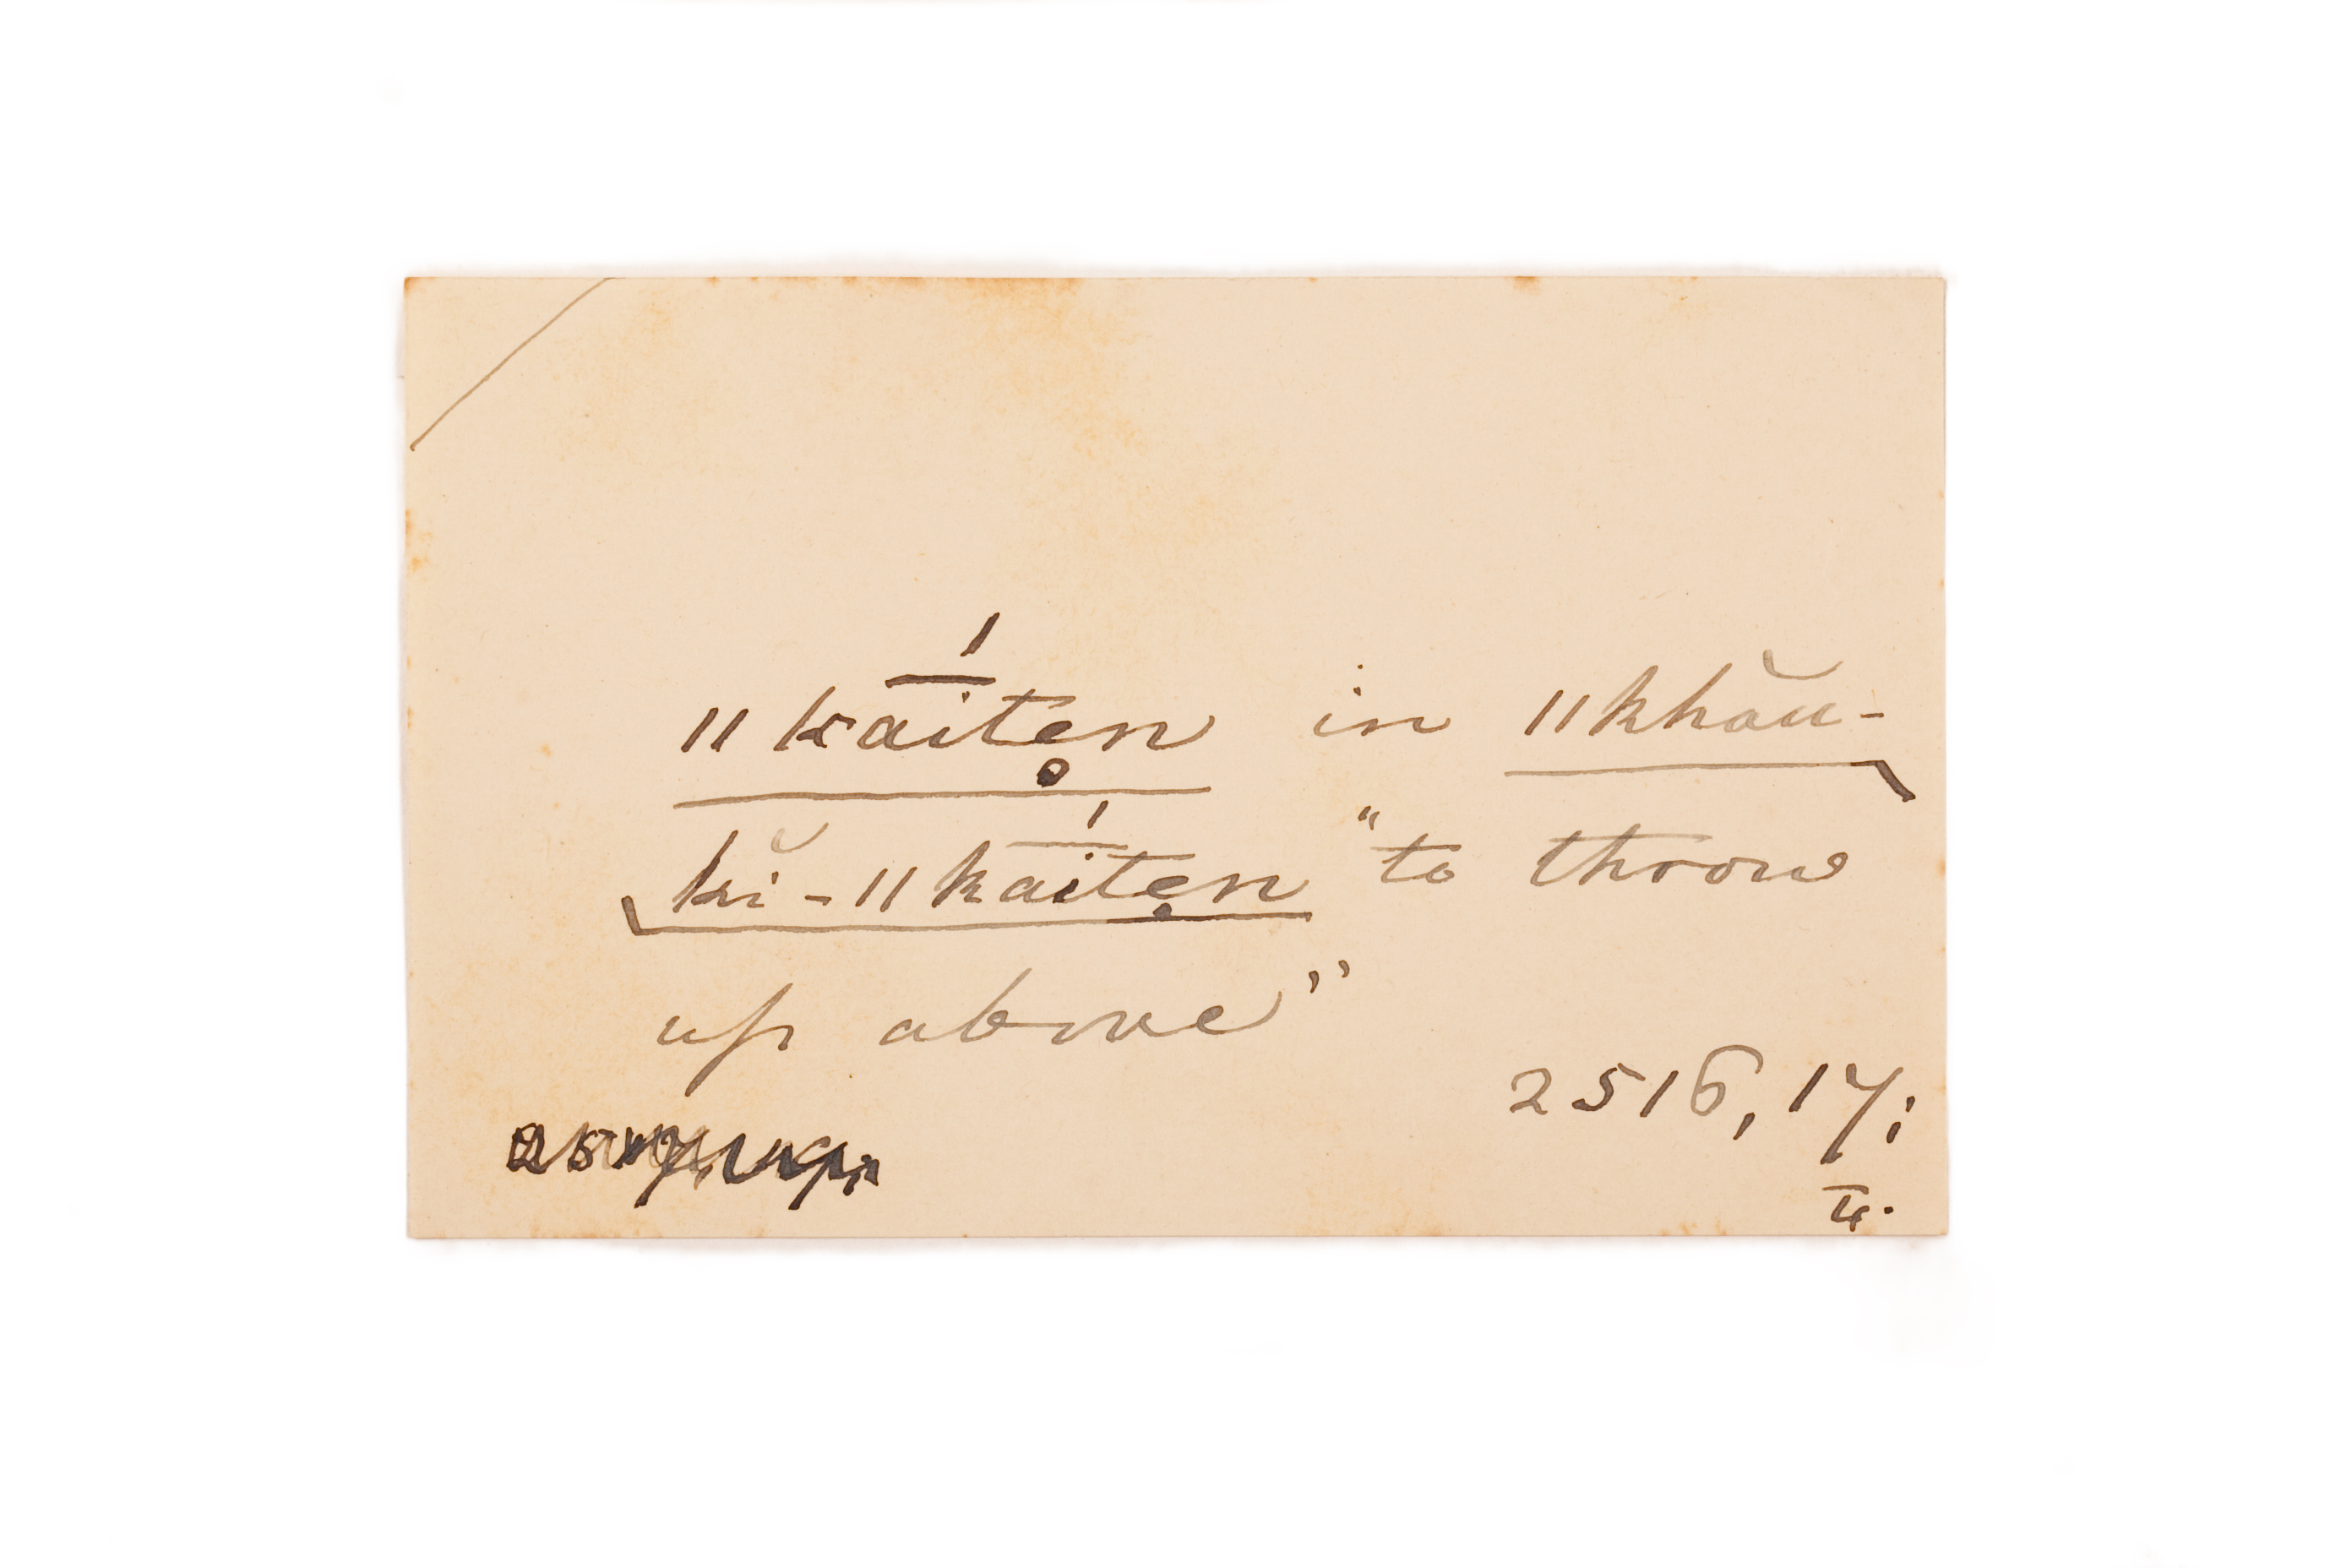 ǁkā́itẹn in ǁkhău-
kĭ-ǁkā́itẹn “to throw
up above”
2516, 17;